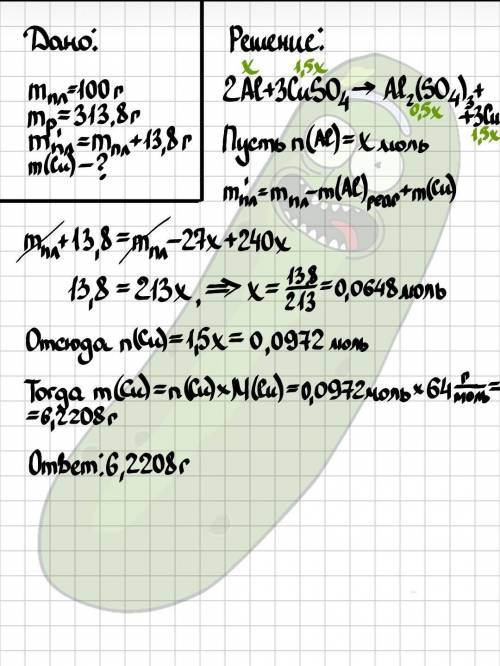 Дано:
mпл=100г
mр=313,8г
m'пл=mпл+13,8г
m(Cu)-?
Решение:
x 1,5x
2Al+3CuSO4→Al2(SO4)3+
0,5x +3Cu
1,5x
Пусть n(Al)=x моль
m'пл=mпл-m(Al)реаг+m(Cu)
mпл+13,8=mпл-27x+240x
13,8=213x, ⇒ x=13,8/213=0,0648моль
Отсюда n(Cu)=1,5x=0,0972 моль
Тогда m(Cu)=n(Cu)×M(Cu)=0,0972моль×64 г/моль=
=6,2208г
Ответ:6,2208г